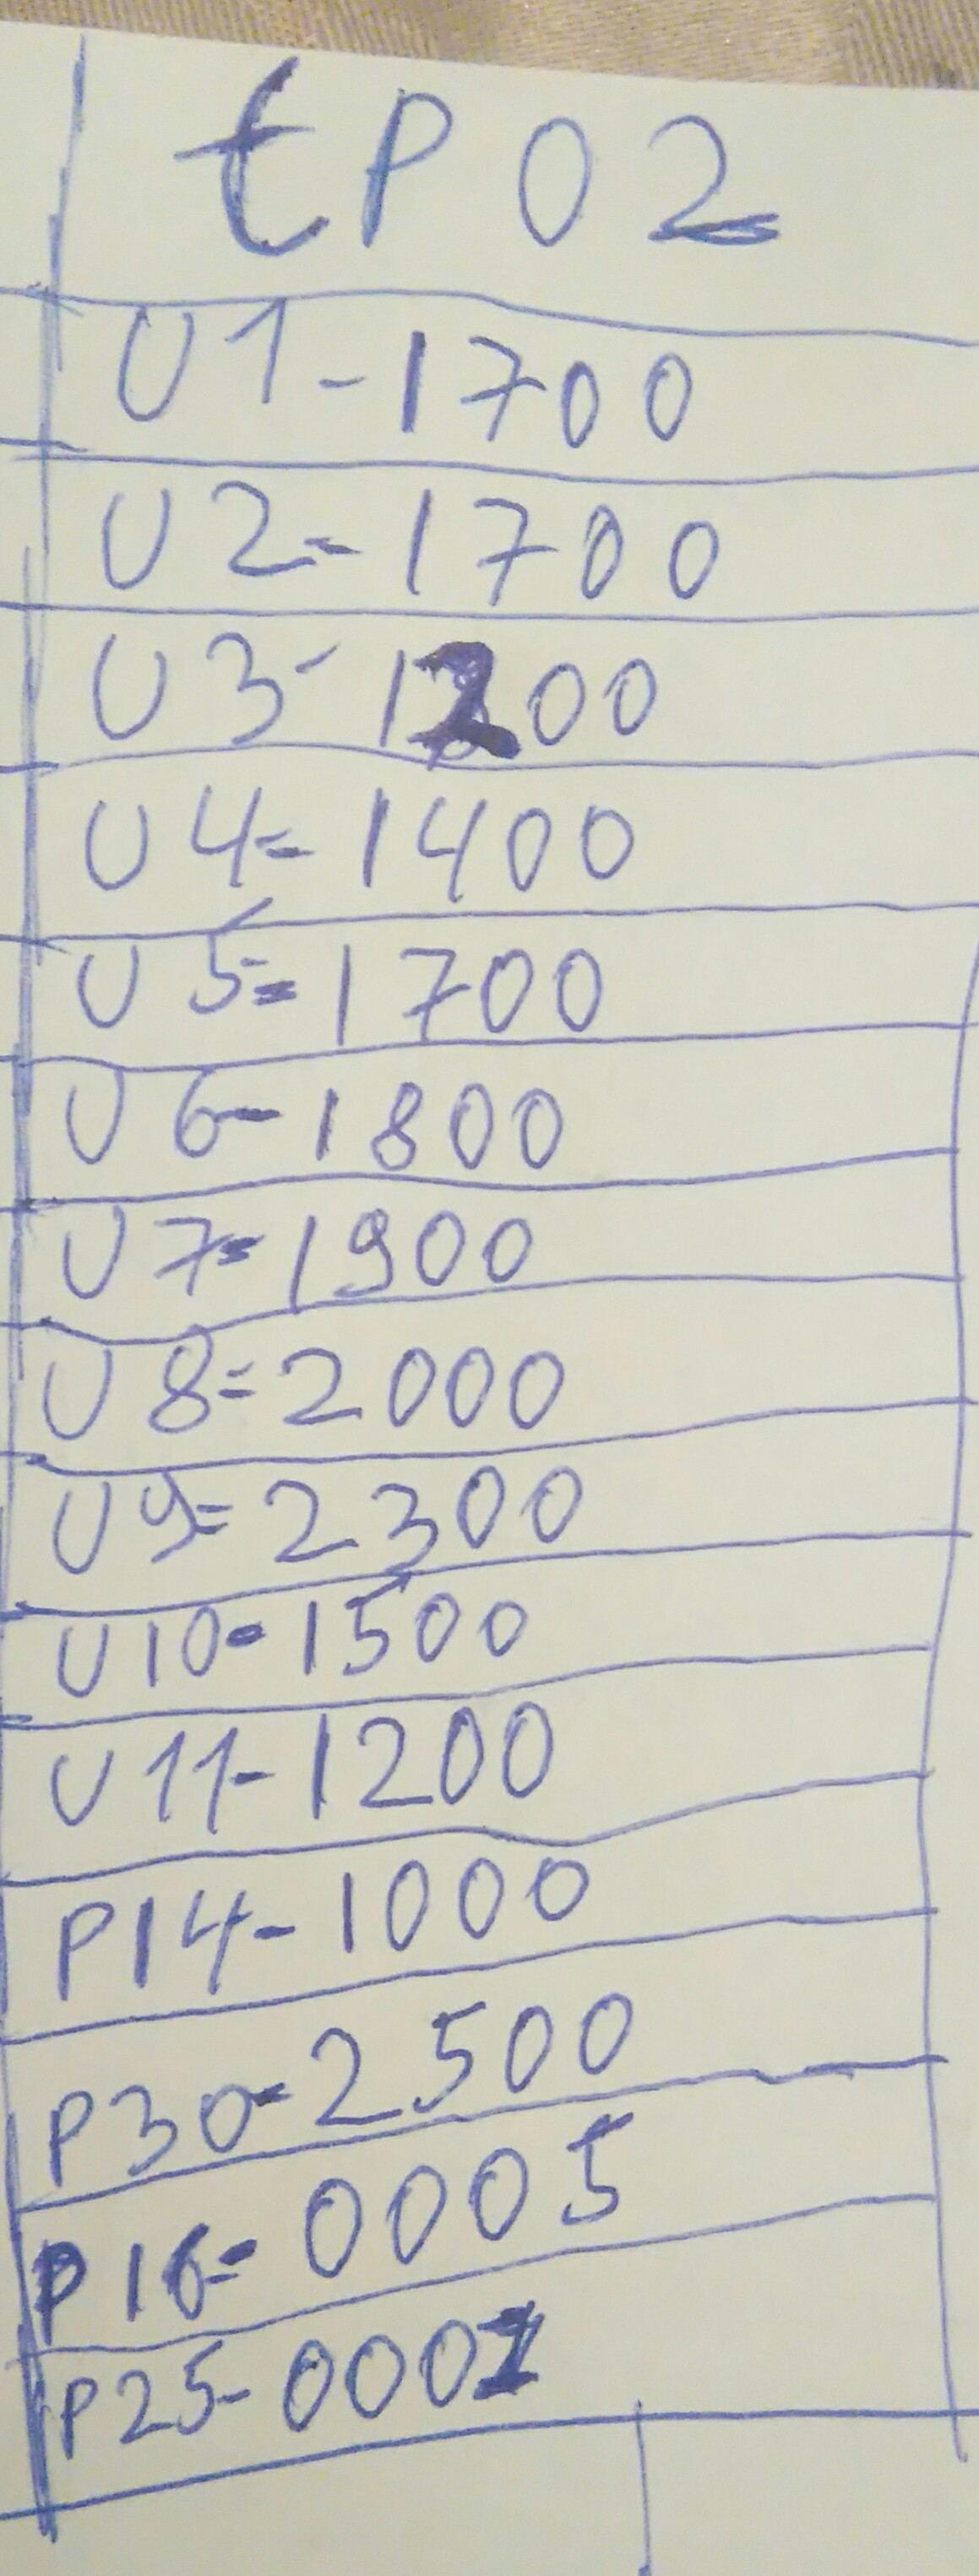 tP02
U1-1700
U2=1700
U3-1200
U4=1400
U5=1700
U6-1800
U7=1900
U8=2000
U9=2300
U10=1500
U11-1200
P14-1000
P30=2500
P16=0005
P25-0001